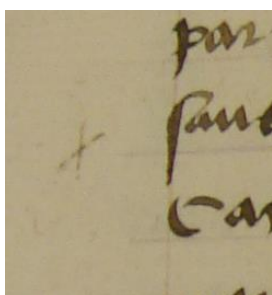 par
sau
Car